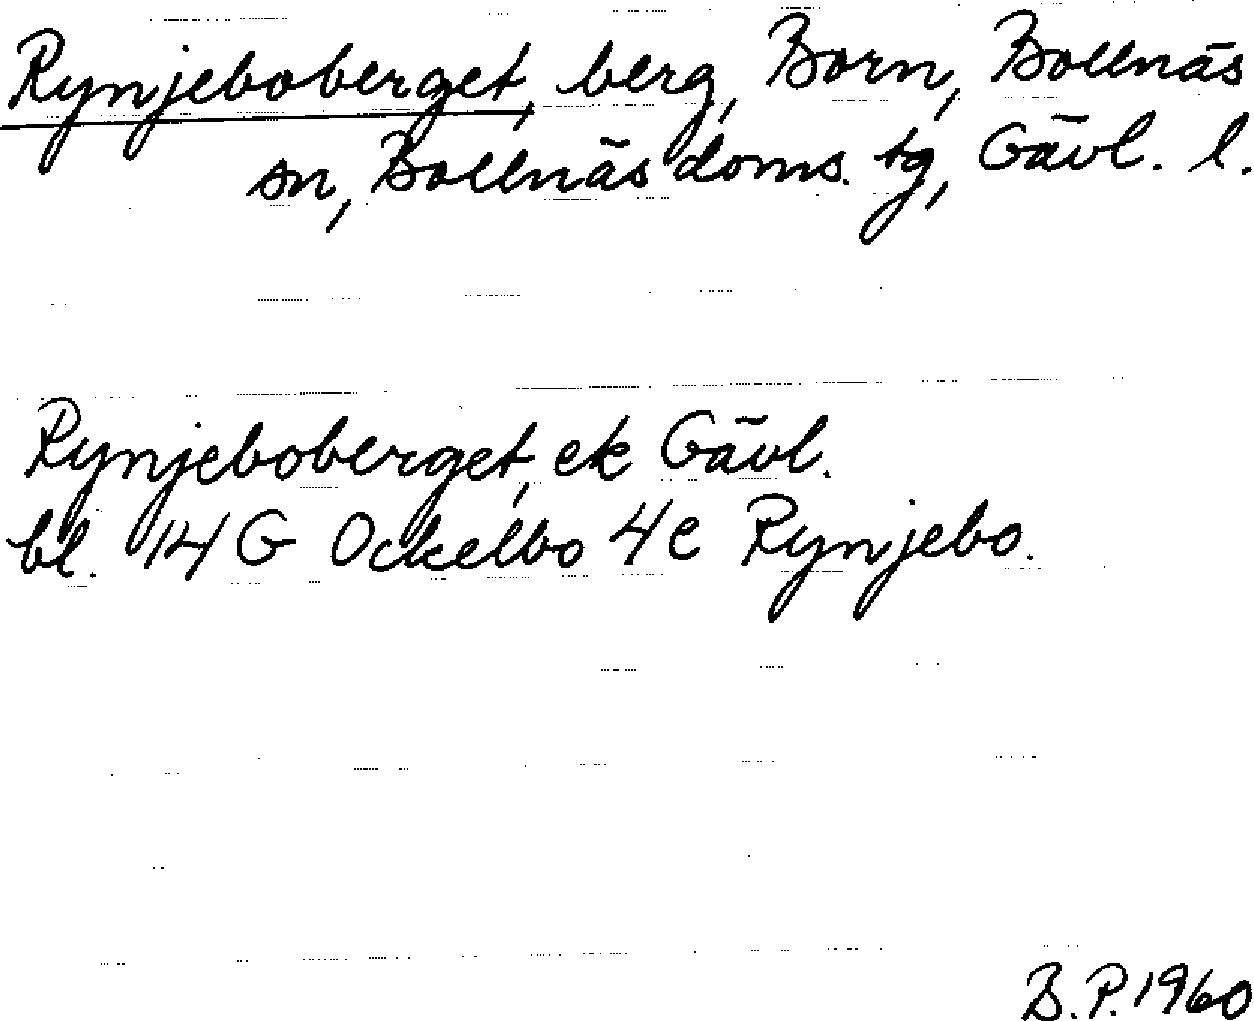 Rynjeboberget, berg, Born, Bollnäs
sn, Bollnäs doms. tg, Gävl. l.
Rynjeboberget, ek Gävl.
bl. 14 G Ockelbo 4c Rynjebo.
B.P. 1960